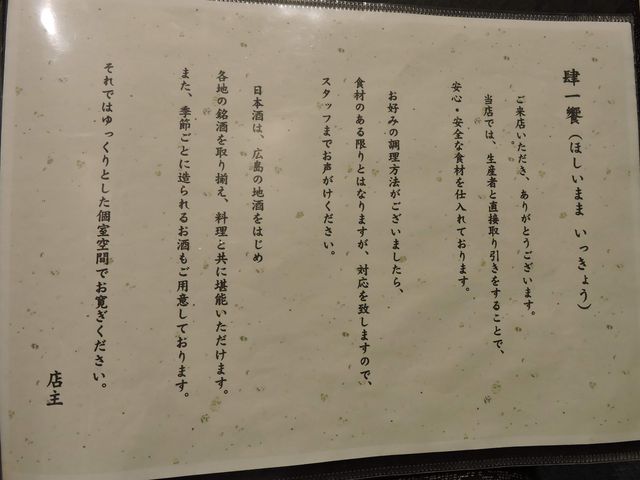 肆一饗（ほしいまま いっきょう）
ご来店いただき、ありがとうございます。
当店では、生産者と直接取り引きをすることで、
安心・安全な食材を仕入れております。
お好みの調理方法がございましたら、
食材のある限りとはなりますが、対応を致しますので、
スタッフまでお声がけください。
日本酒は、広島の地酒をはじめ
各地の銘酒を取り揃え、料理と共に堪能いただけます。
また、季節ごとに造られるお酒もご用意しております。
それではゆっくりとした個室空間でお寛ぎください。
店主